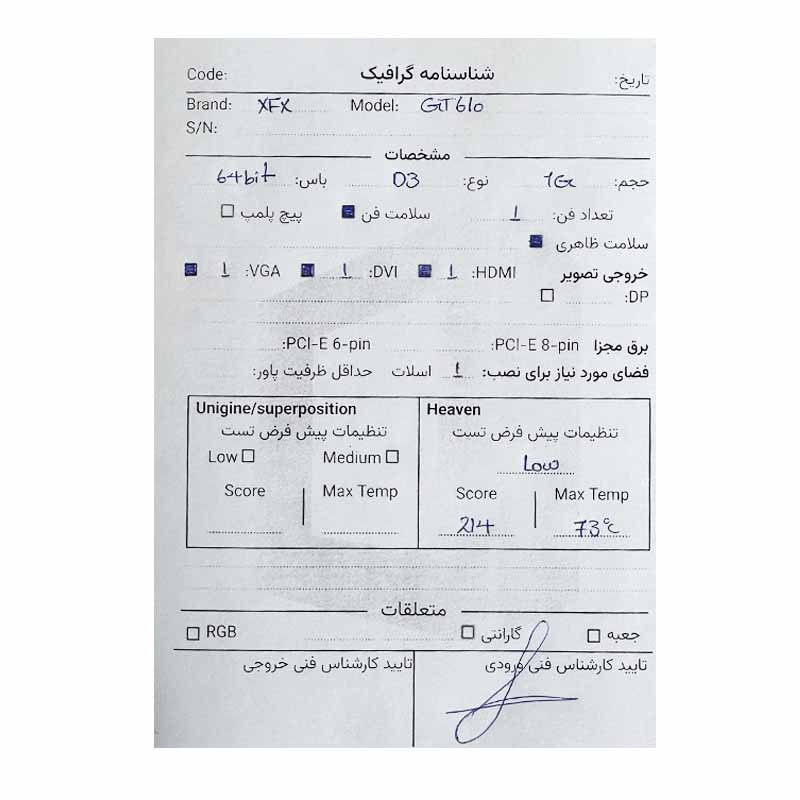 Code: شناسنامه گرافیک تاریخ:
Brand: XFX Model: GT 610
S/N:
مشخصات
حجم: 1G نوع: D3 باس: 64bit
تعداد فن: 1 سلامت فن پیچ پلمپ
سلامت ظاهری
خروجی تصویر HDMI: 1 DVI: 1 VGA: 1
DP:
برق مجزا PCI-E 8-pin: PCI-E 6-pin:
فضای مورد نیاز برای نصب: 1 اسلات حداقل ظرفیت پاور:
Unigine/superposition Heaven
تنظیمات پیش فرض تست تنظیمات پیش فرض تست
Low Medium Low
Score Max Temp Score Max Temp
214 73°C
متعلقات
جعبه گارانتی RGB
تایید کارشناس فنی ورودی تایید کارشناس فنی خروجی